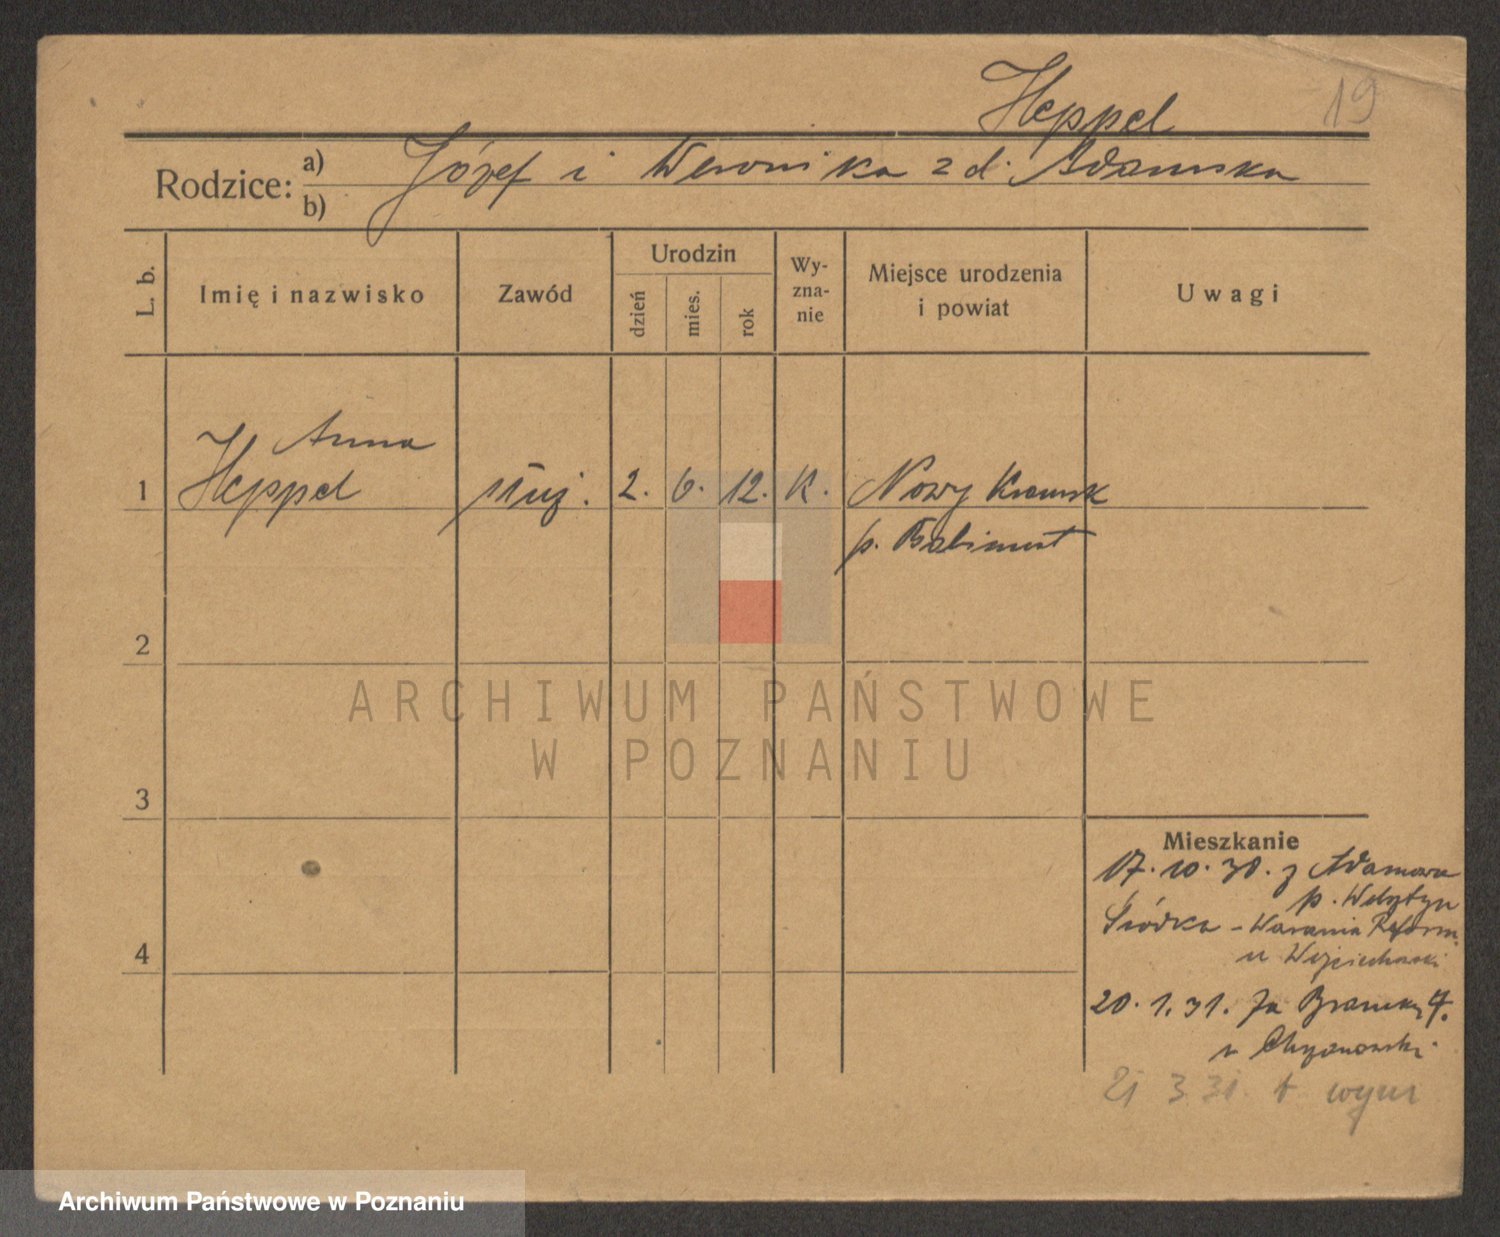 Heppel
19
Rodzice: a) Józef i Weronika z d. Adamska
b)
L. b.
Imię i nazwisko
Zawód
Urodzin
dzień
mies.
rok
Wy-
zna-
nie
Miejsce urodzenia
i powiat
Uwagi
Anna
1 Heppel służ. 2. 6. 12. K. Nowy Kramsk
p. Babimost
2
ARCHIWUM PAŃSTWOWE
W POZNANIU
3
Mieszkanie
17. 10. 30. z Adamowa
p. Wolsztyn
Śródka -
4
u Wojciechowski
20. 1. 31. Za Bramką 7.
u Chrzanowski
21 3 31. wym
Archiwum Państwowe w Poznaniu